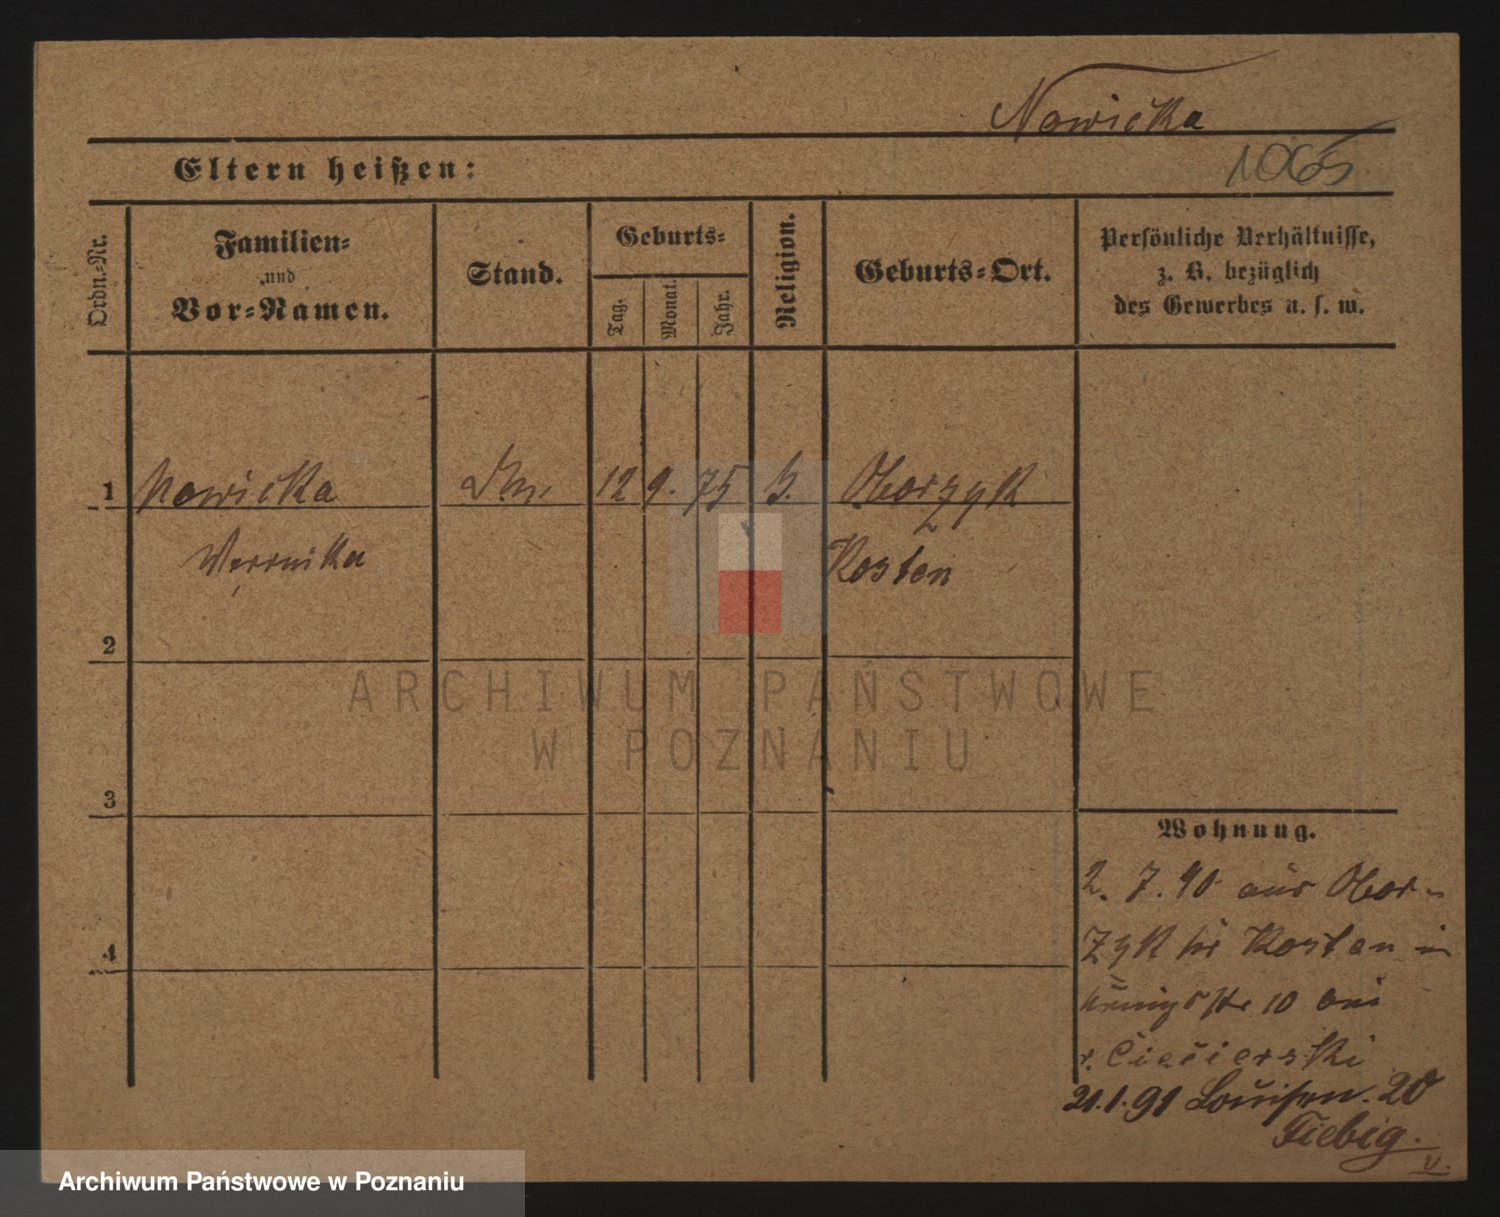 Nowicka
Eltern heißen:
1065
Ordn.-Nr.
Familien-
und
Vor-Namen.
Stand.
Geburts-
Tag.
Monat.
Jahr.
Religion.
Geburts-Ort.
Persönliche Verhältnisse,
z. B. bezüglich
des Gewerbes u. s. w.
1 Nowicka 12 9. 75 Oborzyk
Weronika Kosten
2
3
4
Wohnung.
2. 7. 90 aus Obor-
zyk Kosten in
Königsstr 10 bei
v. Ciecierski
21.1.91 Louisen. 20
Fiebig.
ARCHIWUM PAŃSTWOWE
W POZNANIU
Archiwum Państwowe w Poznaniu